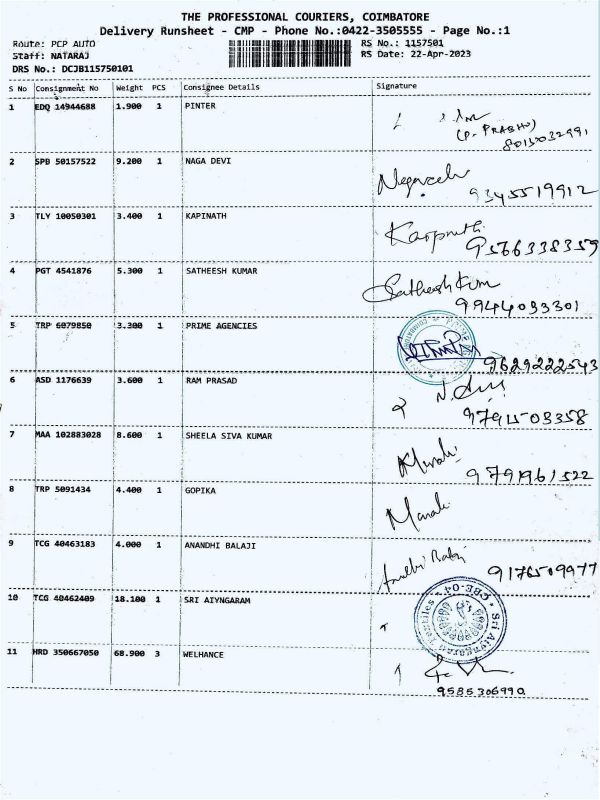 THE PROFESSIONAL COURIERS, COIMBATORE
Delivery Runsheet - CMP - Phone No.:0422-3505555 - Page No.:1
Route: PCP AUTO RS No.: 1157501
Staff: NATARAJ RS Date: 22-Apr-2023
DRS No.: DCJB115750101
S No Consignment No Weight PCS Consignee Details Signature
1 EDQ 14944688 1.900 1 PINTER
(P. PRABHU)
8015032991
2 SPB 50157522 9.200 1 NAGA DEVI
9345519912
3 TLY 10050301 3.400 1 KAPINATH
9566338359
4 PGT 4541876 5.300 1 SATHEESH KUMAR Satheesh Kum
9944033301
5 TRP 6079850 3.300 1 PRIME AGENCIES
9629222543
6 ASD 1176639 3.600 1 RAM PRASAD
03358
7 MAA 102883028 8.600 1 SHEELA SIVA KUMAR
9791961522
8 TRP 5091434 4.400 1 GOPIKA
9 TCG 40463183 4.000 1 ANANDHI BALAJI
9176509977
10 TCG 40462409 18.100 1 SRI AIYNGARAM Sri Aiyngaram Textiles * CBE-04 *
11 HRD 350667050 68.900 3 WELHANCE
9585306990